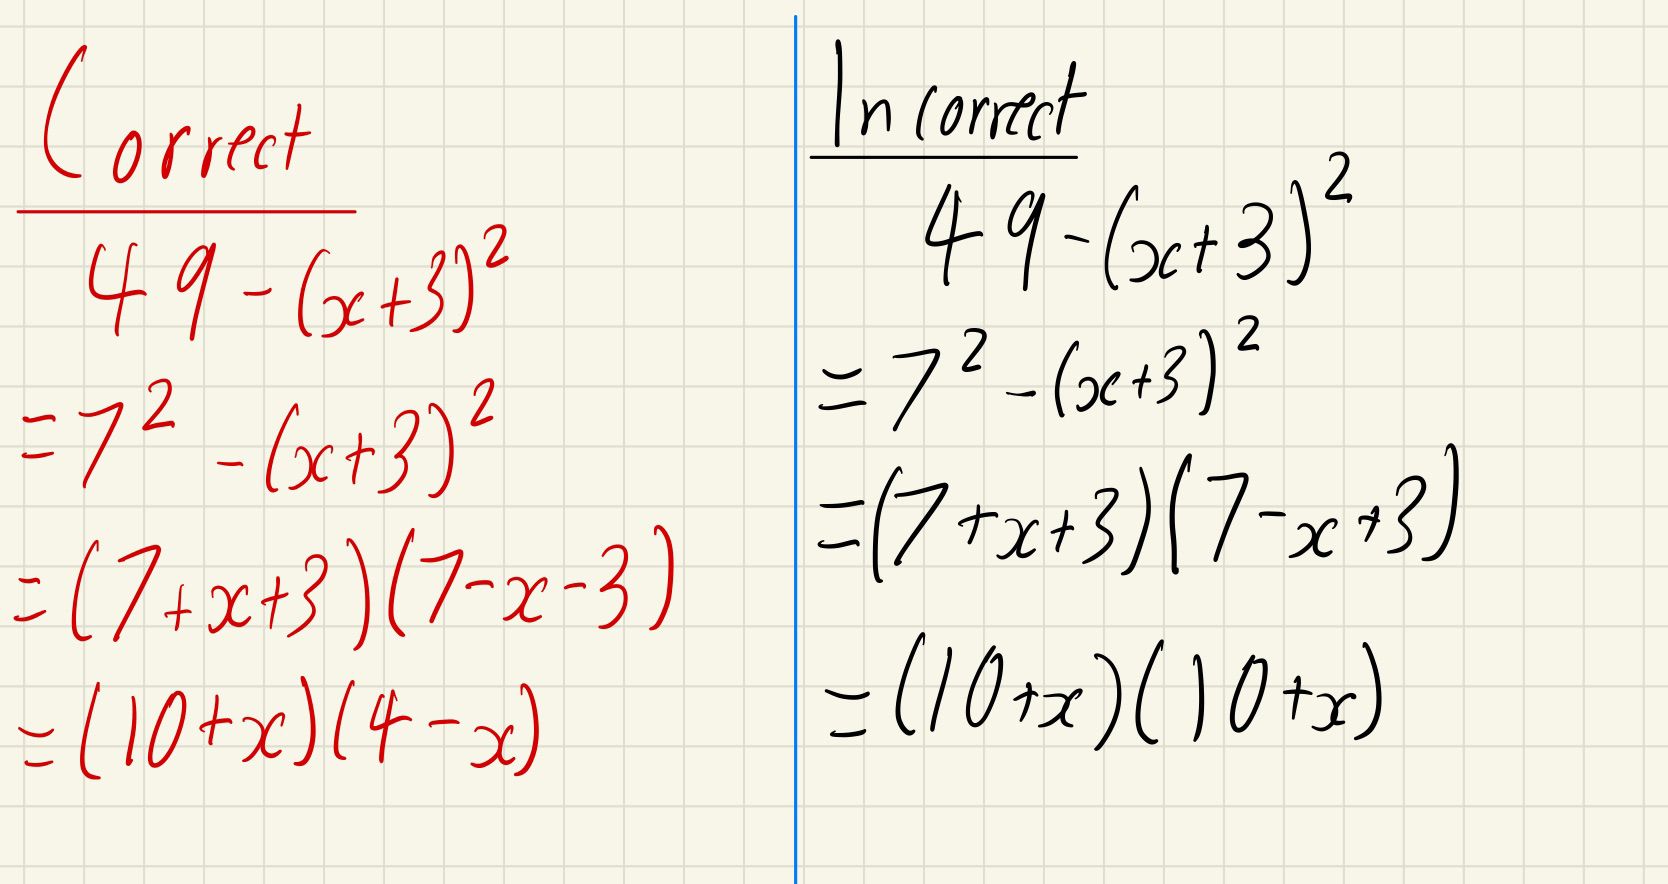 Correct
49-(x+3)²
=7²-(x+3)²
=(7+x+3)(7-x-3)
=(10+x)(4-x)
Incorrect
49-(x+3)²
=7²-(x+3)²
=(7+x+3)(7-x+3)
=(10+x)(10+x)